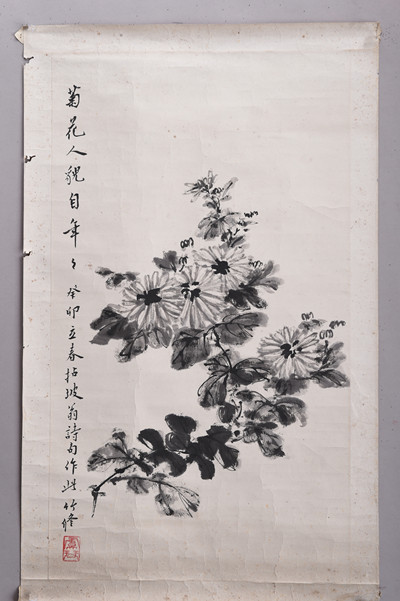 菊花人貌自年〻癸卯立春拈坡翁詩句作此竹修